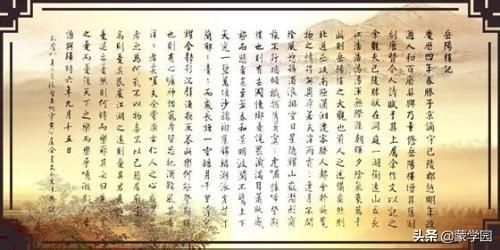 岳陽樓記
慶曆四年春滕子京謫守巴陵郡越明年政
通人和百廢具興乃重修岳陽樓增其舊制
刻唐賢今人詩賦于其上屬余作文以記之
余觀夫巴陵勝狀在洞庭一湖銜遠山吞長
江浩浩湯湯橫無際涯朝暉夕陰氣象萬千
此則岳陽樓之大觀也前人之述備矣然則
北通巫峽南極瀟湘遷客騷人多會於此覽
物之情得無異乎若夫霪雨霏霏連月不開
陰風怒號濁浪排空日星隱耀山岳潛形商
旅不行檣傾楫摧薄暮冥冥虎嘯猿啼登斯
樓也則有去國懷鄉憂讒畏譏滿目蕭然感
極而悲者矣至若春和景明波瀾不驚上下
天光一碧萬頃沙鷗翔集錦鱗游泳岸芷汀
蘭郁郁青青而或長煙一空皓月千里浮光
耀金靜影沉璧漁歌互答此樂何極登斯樓
也則有心曠神怡寵辱皆忘把酒臨風其喜洋
洋者矣嗟夫予嘗求古仁人之心或異二
者之為何哉不以物喜不以己悲居廟堂之
高則憂其民處江湖之遠則憂其君是進亦
憂退亦憂然則何時而樂耶其必曰先天下
之憂而憂後天下之樂而樂乎噫微斯人吾
誰與歸時六年九月十五日
头条 @蒙学园